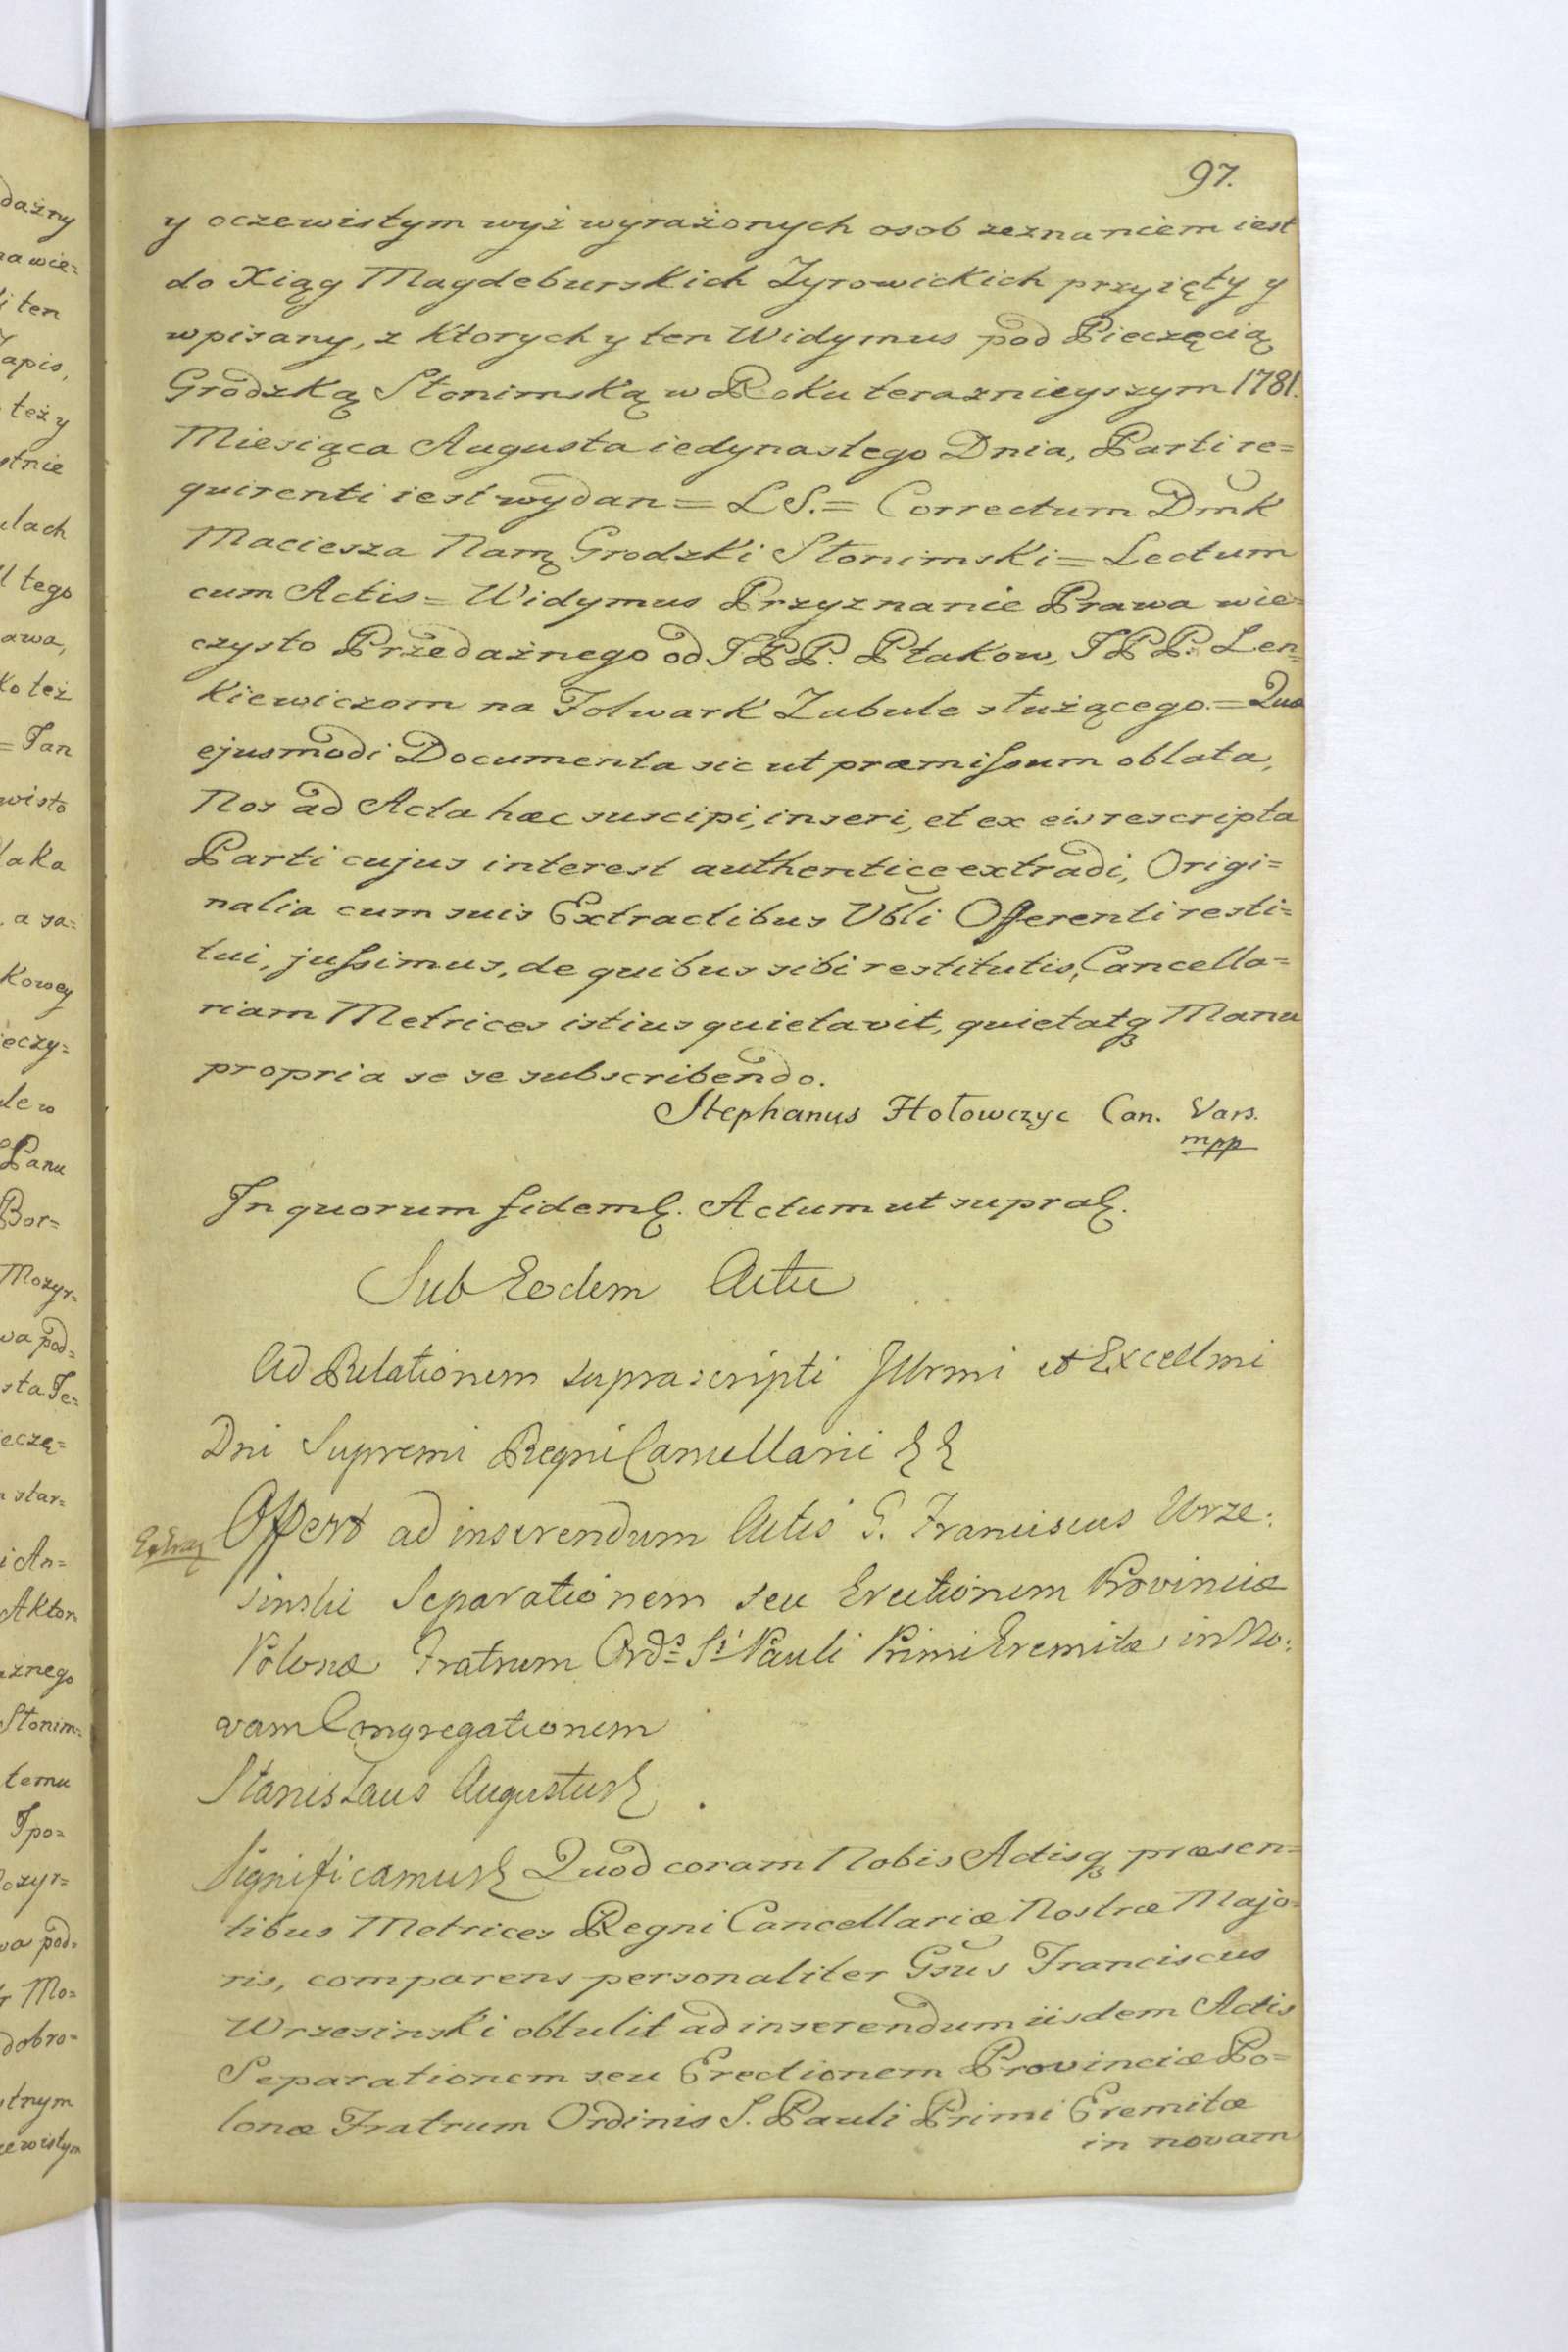 97.
y oczewistym wyż wyrażonych osob zeznaniem iest
do Xiąg Magdeburskich Zyrowickich przyięty y
wpisany, z Ktorych y ten Widymus pod Pieczęcią
Grodzką Słonimską w Roku teraznieyszym 1781.
Miesiąca Augusta iedynastego Dnia, Parti re=
quirenti iest wydan = LS. = Correctum Dmk
Maciesza Namą Grodzki Słonimski = Lectum
cum Actis = Widymus Przyznanie Prawa wie=
czysto Przedażnego od JPP. Ptakow, JPP. Len=
Kiewiczom na Folwark Zabule służącego. = Quæ
ejusmodi Documenta sic ut præmissum oblata,
Nos ad Acta hæc suscipi, inseri, et ex eis rescripta
Parti cujus interest authentice extradi, Origi=
nalia cum suis Extractibus Vbli Offerenti resti=
tui, jussimus, de quibus sibi restitutis, Cancella=
riam Metrices istius quietavit, quietatq3 Manu
propria se se subscribendo.
Stephanus Hołowczyc Can. Vars.
mpp
In quorum fidem &. Actum ut supra &.
Sub Eodem Actu
Ad Relationem suprascripti Jllrmi et Excellmi
Dni Supremi Regni Cancellarii & &
Offert ad inserendum Actis G. Franciscus Wrze=
sinski Separationem seu Erectionem Provinciæ
Polonæ Fratrum Ord=s S=i Pauli Primi Eremitæ in No=
vam Congregationem
Stanislaus Augustus &.
Significamus & Quod coram Nobis Actisq3 præsen=
tibus Metrices Regni Cancellariæ Nostræ Majo=
ris, comparens personaliter Gsus Franciscus
Wrzesinski obtulit ad inserendum iisdem Actis
Separationem seu Erectionem Provinciæ Po=
lonæ Fratrum Ordinis S. Pauli Primi Eremitæ
in novam